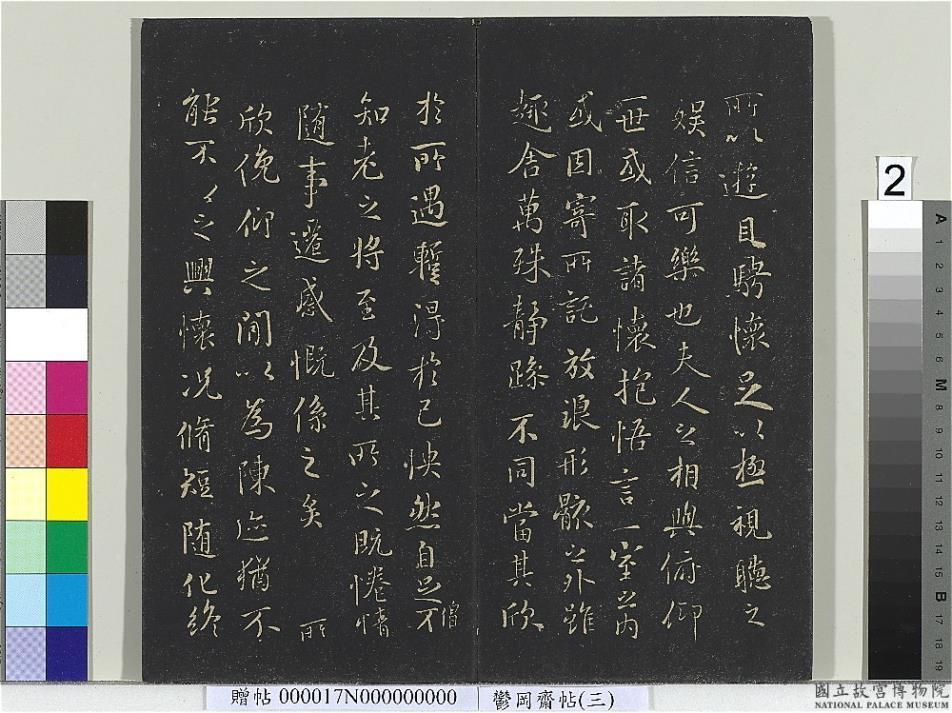 所以遊目騁懷足以極視聽之
娛信可樂也夫人之相與俯仰
一世或取諸懷抱悟言一室之內
或因寄所託放浪形骸之外雖
趣舍萬殊靜躁不同當其欣
於所遇暫得於己怏然自足不
僧
知老之將至及其所之既惓情
隨事遷感慨係之矣 所
欣俛仰之間以為陳迹猶不
能不以之興懷況脩短隨化終
2
A 1 2 3 4 5 M 8 9 10 11 12 13 14 15 B 16 17 18 19
贈帖 000017N000000000 鬱岡齋帖(三)
國立故宮博物院
NATIONAL PALACE MUSEUM